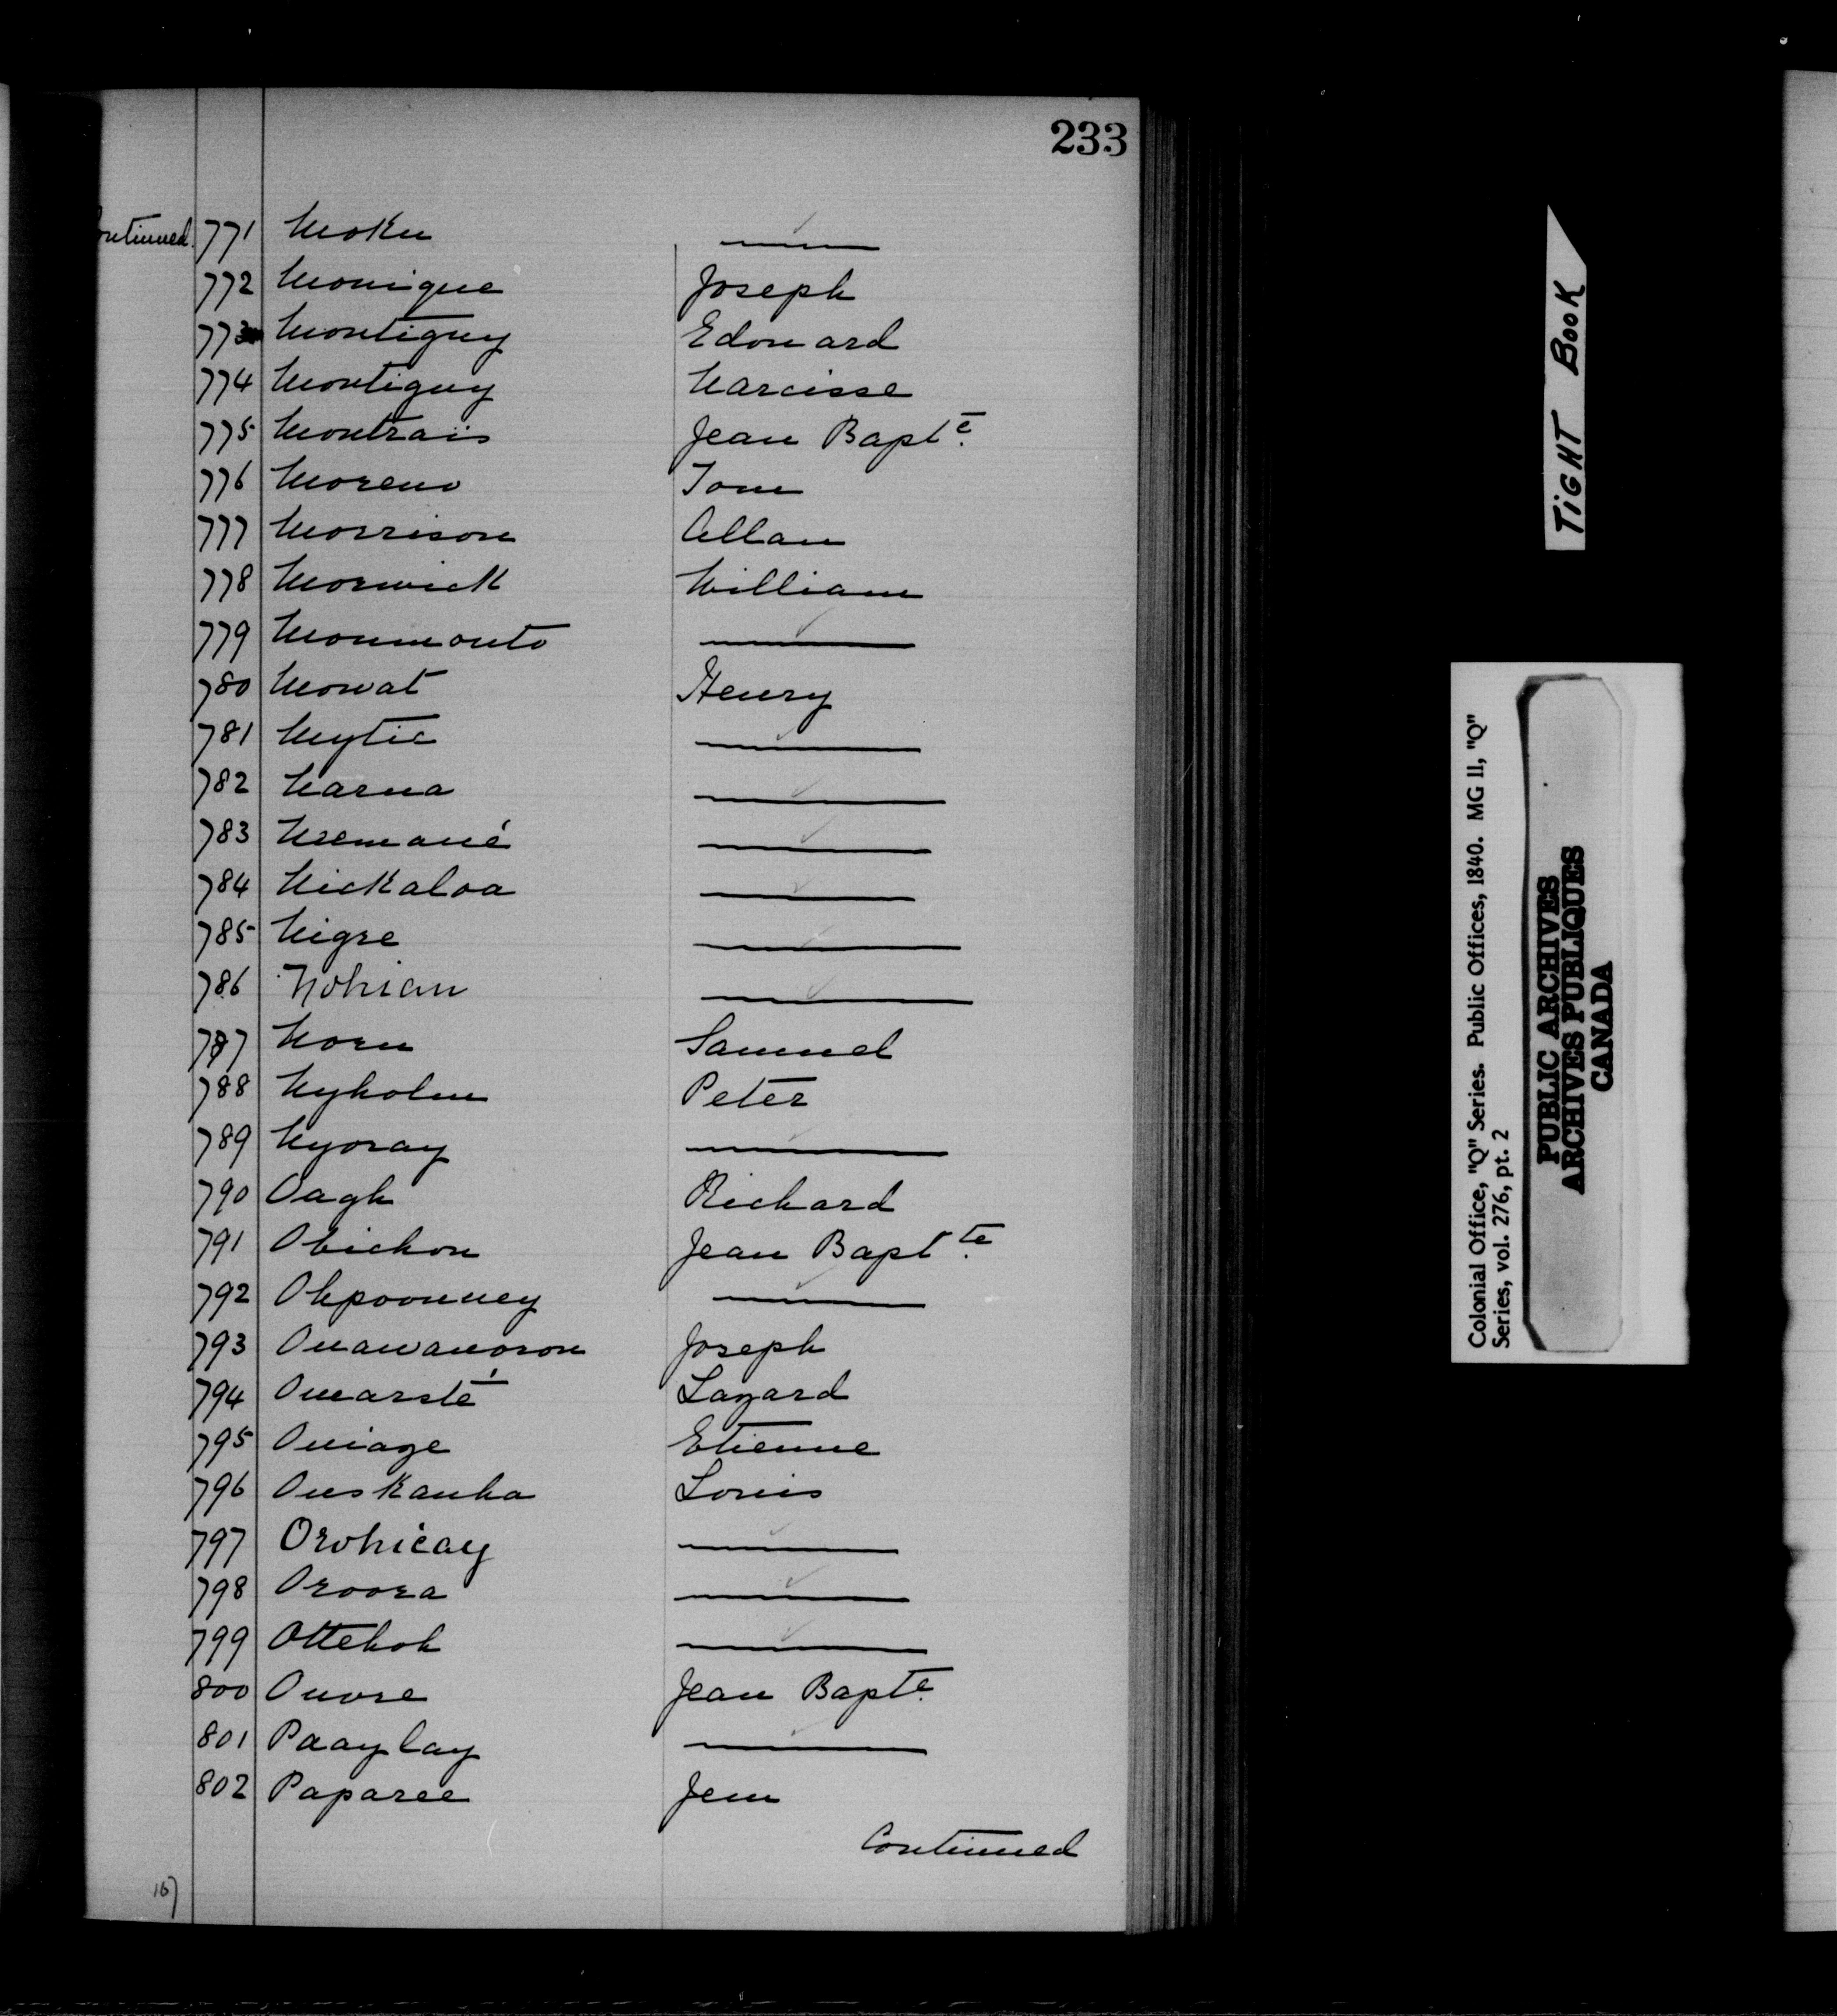 233
ontinued. 771 Moku ———
772 Monique Joseph
773 Montigny Edouard
774 Montigny Narcisse
775 Montrais Jean Bapte.
776 Moreno Tom
777 Morrison Allan
778 Morwick William
779 Moumouto ———
780 Mowat Henry
781 Mytie ———
782 Narua ———
783 Nremané ———
784 Nickaloa ———
785 Nigre ———
786 Nohian ———
787 Norn Samuel
788 Nyholm Peter
789 Nyoray ———
790 Oagh Richard
791 Obichon Jean Baptte.
792 Ohpoonuey ———
793 Onawanoron Joseph
794 Onearsté Lazard
795 Oniaze Etienne
796 Onskanha Louis
797 Orohicay ———
798 Oroora ———
799 Ottehoh ———
800 Ouvre Jean Bapte.
801 Paaylay ———
802 Paparee Jem
Continued
167
TiGHT BOOK
Colonial Office, "Q" Series. Public Offices, 1840. MG 11, "Q"
Series, vol. 276, pt. 2
PUBLIC ARCHIVES
ARCHIVES PUBLIQUES
CANADA